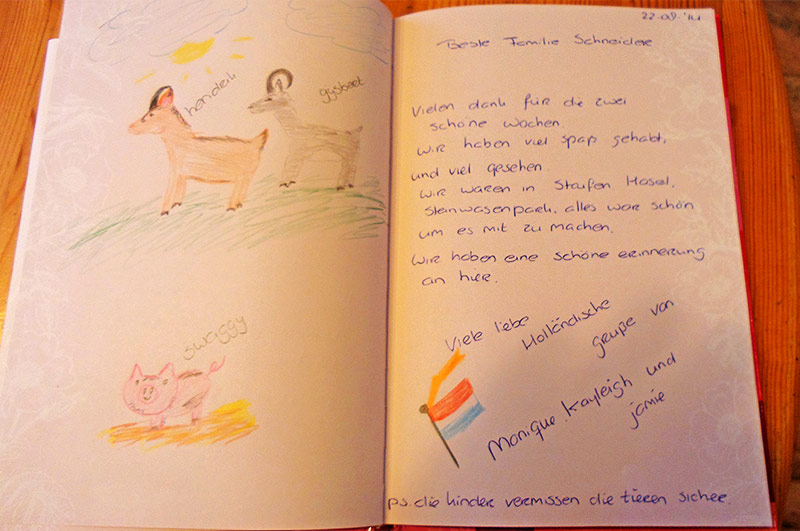 hendrik
gijsbert
swaiggy
22-08-'14
Beste Familie Schneidere
Vielen dank für die zwei
schöne wochen.
wir haben viel spaß gehabt,
und viel gesehen
wir waren in Staufen Hasel,
Steinwasenpark, alles war schön
um es mit zu machen.
wir haben eine schöne erinnerung
an hier.
Viele liebe
Holländische
gruße von
Monique, Kayleigh und
jamie
ps. die kinder vermissen die tieren sicher.